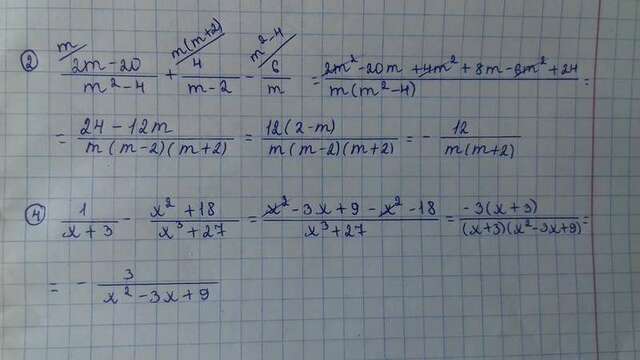 ② (2m-20)/(m²-4) ^m + 4/(m-2) ^m(m+2) - 6/m ^m²-4 = (2m²-20m+4m²+8m-6m²+24)/(m(m²-4)) =
= (24-12m)/(m(m-2)(m+2)) = 12(2-m)/(m(m-2)(m+2)) = - 12/(m(m+2))
④ 1/(x+3) - (x²+18)/(x³+27) = (x²-3x+9-x²-18)/(x³+27) = -3(x+3)/((x+3)(x²-3x+9)) =
= - 3/(x²-3x+9)